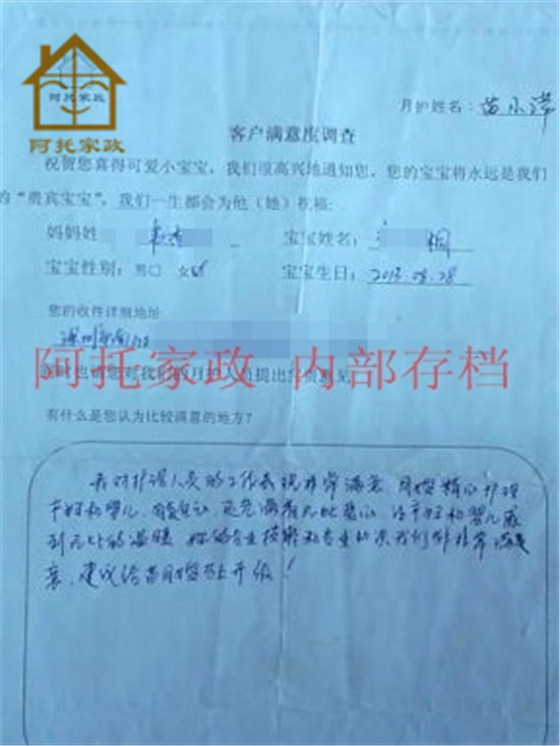 阿托家政
阿托家政
月护姓名：苗小萍
客户满意度调查
祝贺您喜得可爱小宝宝，我们很高兴地通知您，您的宝宝将永远是我们
的“贵宾宝宝”，我们一生都会为他（她）祝福：
妈妈姓 宝宝姓名：
宝宝性别：男□ 女 宝宝生日：2013.08.28
您的收件详细地址
深圳市南山
阿托家政 内部存档
有什么是您认为比较满意的地方？
我对护理人员的工作表现非常满意，月嫂精心护理
产妇和婴儿，
到无比的温暖 她的专业技术和专业 我们都非常满
意，建议给苗月嫂马上升级！